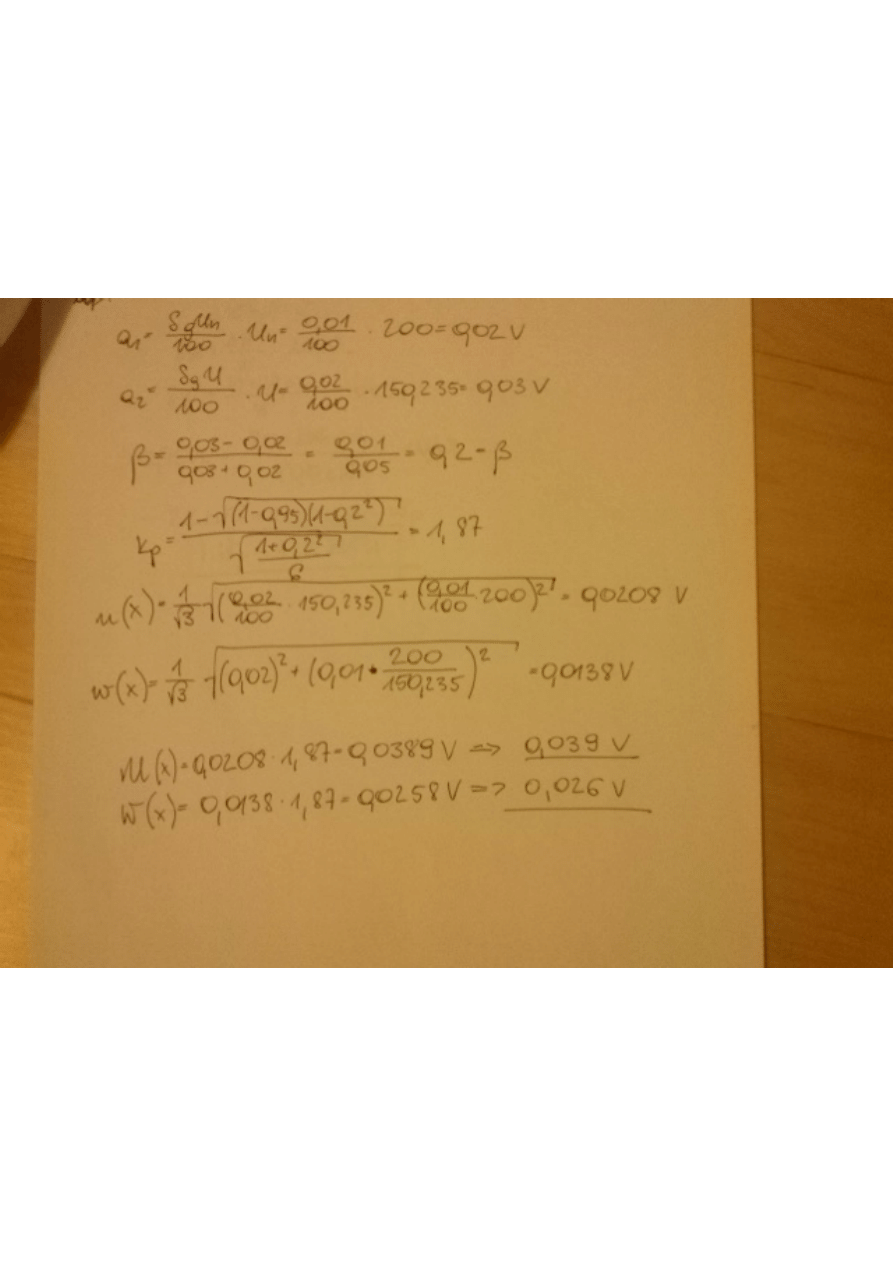 a₁ = δgUn/100 · Un = 0,01/100 · 200 = 0,02 V
a₂ = δgU/100 · U = 0,02/100 · 150,235 = 0,03 V
β = (0,03 - 0,02)/(0,03 + 0,02) = 0,01/0,05 = 0,2 - β
kp = (1 - √((1-0,95)(1-0,2²)))/√((1+0,2²)/6) = 1,87
u(x) = 1/√3 √((0,02/100 · 150,235)² + (0,01/100 · 200)²) = 0,0208 V
w(x) = 1/√3 √((0,02)² + (0,01 · 200/150,235)²) = 0,0138 V
U(x) = 0,0208 · 1,87 = 0,0389 V => 0,039 V
W(x) = 0,0138 · 1,87 = 0,0258 V => 0,026 V